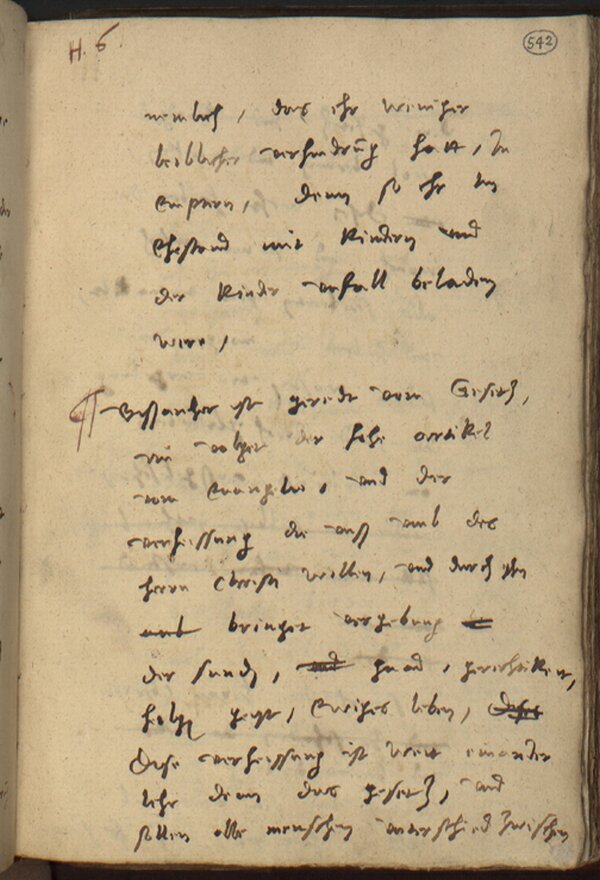 H. 6
542
nemlich, das ehr weniger
leiblicher verhindrung hatt, zu
denn so ehr im
Ehestand mit kindern und
der kinder unfall beladen
were,
Bissanher ist geredt vom Gesetz,
nu volget der hohe artikel
vom Euangelio, und der
verheissung die uns umb des
herrn Christi willen, und durch yhn
umb bringet vergebung
der sund, und gnad, gerechtikeit,
heilgen geist, Ewiges leben, diese
Diese verheissung ist weit ein ander
lehr denn das gesetz, und
sollen alle menschen unterschied zwischen